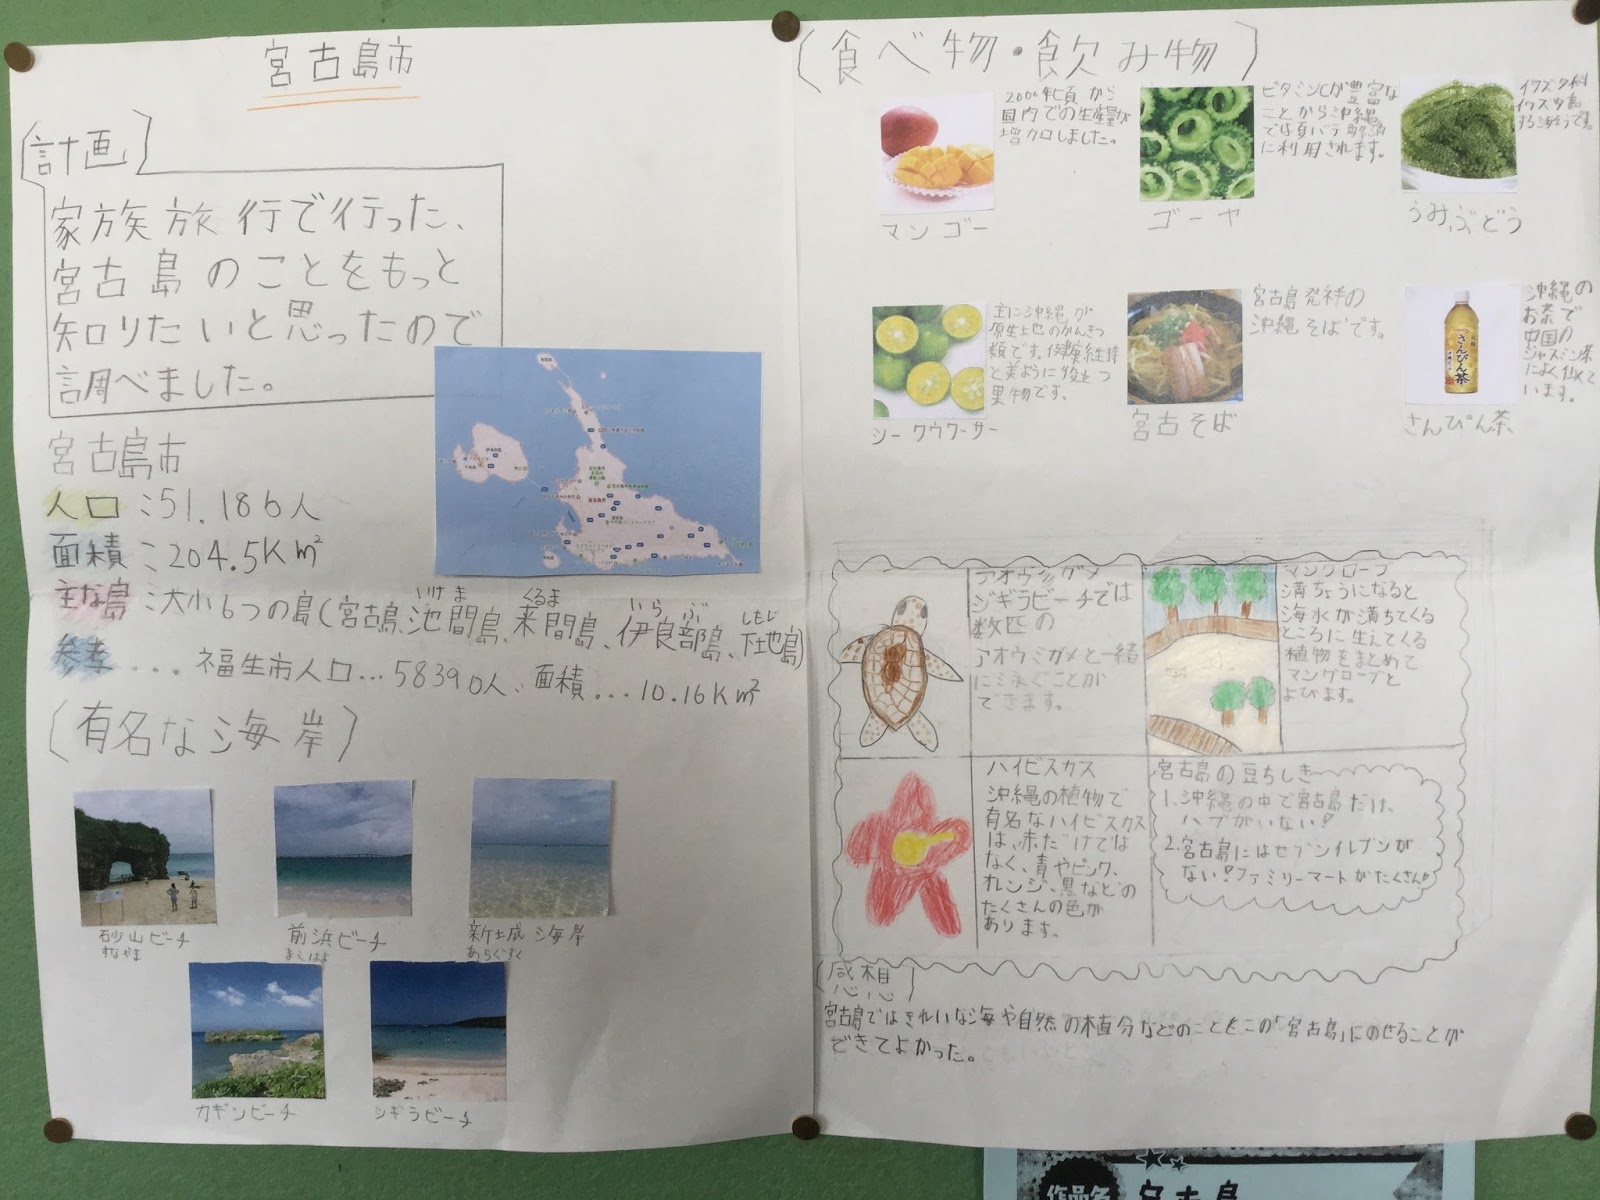 宮古島市
(計画)
家族旅行で行った、
宮古島のことをもっと
知りたいと思ったので
調べました。
宮古島市
人口:51.186人
面積:204.5Km²
いけま くるま いらぶ しもじ
主な島:大小6つの島(宮古島、池間島、来間島、伊良部島、下地島)
参考....福生市人口...58390人、面積...10.16Km²
(有名な海岸)
砂山ビーチ
すなやま
前浜ビーチ
まえはま
新城海岸
あらぐすく
カギンビーチ
シギラビーチ
(食べ物・飲み物)
2000年頃から
国内での生産量が
増加しました。
マンゴー
ビタミンCが豊富な
ことから沖縄
では夏バテ解消
に利用されます。
ゴーヤ
イワズタ科
イワズタ属
する海そうです。
うみぶどう
主に沖縄が
原生地のかんきつ
類です。健康維持
と美ように役立つ
果物です。
シークヮーサー
宮古島発祥の
沖縄そばです。
宮古そば
沖縄の
お茶で
中国の
ジャスミン茶
によく似て
います。
さんぴん茶
さんぴん茶
アオウミガメ
ジギラビーチでは
数匹の
アオウミガメと一緒
に泳ぐことが
できます。
マングローブ
満ちょうになると
海水が満ちてくる
ところに生えてくる
植物をまとめて
マングローブと
よびます。
ハイビスカス
沖縄の植物で
有名なハイビスカス
は、赤だけでは
なく、青やピンク、
オレンジ、黒などの
たくさんの色が
あります。
宮古島の豆ちしき
1.沖縄の中で宮古島だけ、
ハブがいない!
2.宮古島にはセブンイレブンが
ない!ファミリーマートがたくさん!
(感想)
宮古島ではきれいな海や自然の植分などのことをこの「宮古島」にのせることが
できてよかった。
作品名 宮古島